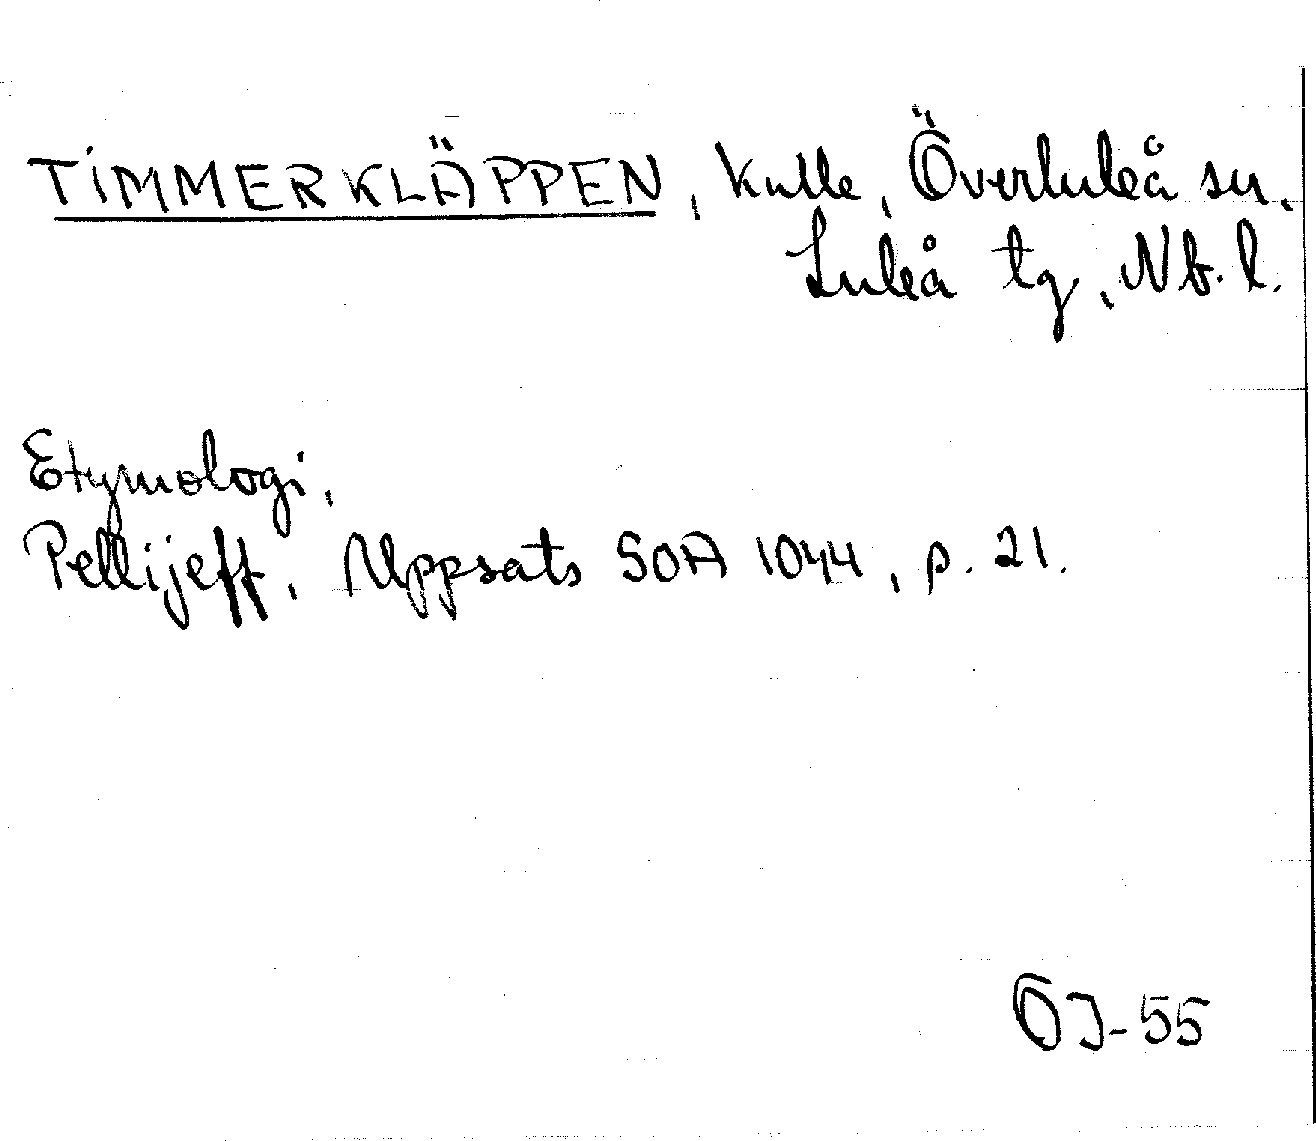 TIMMERKLÄPPEN, kulle, Överluleå sn,
Luleå tg, Nb. l.
Etymologi,
Pellijeff, Uppsats SOA 1044, p. 21.
OJ-55